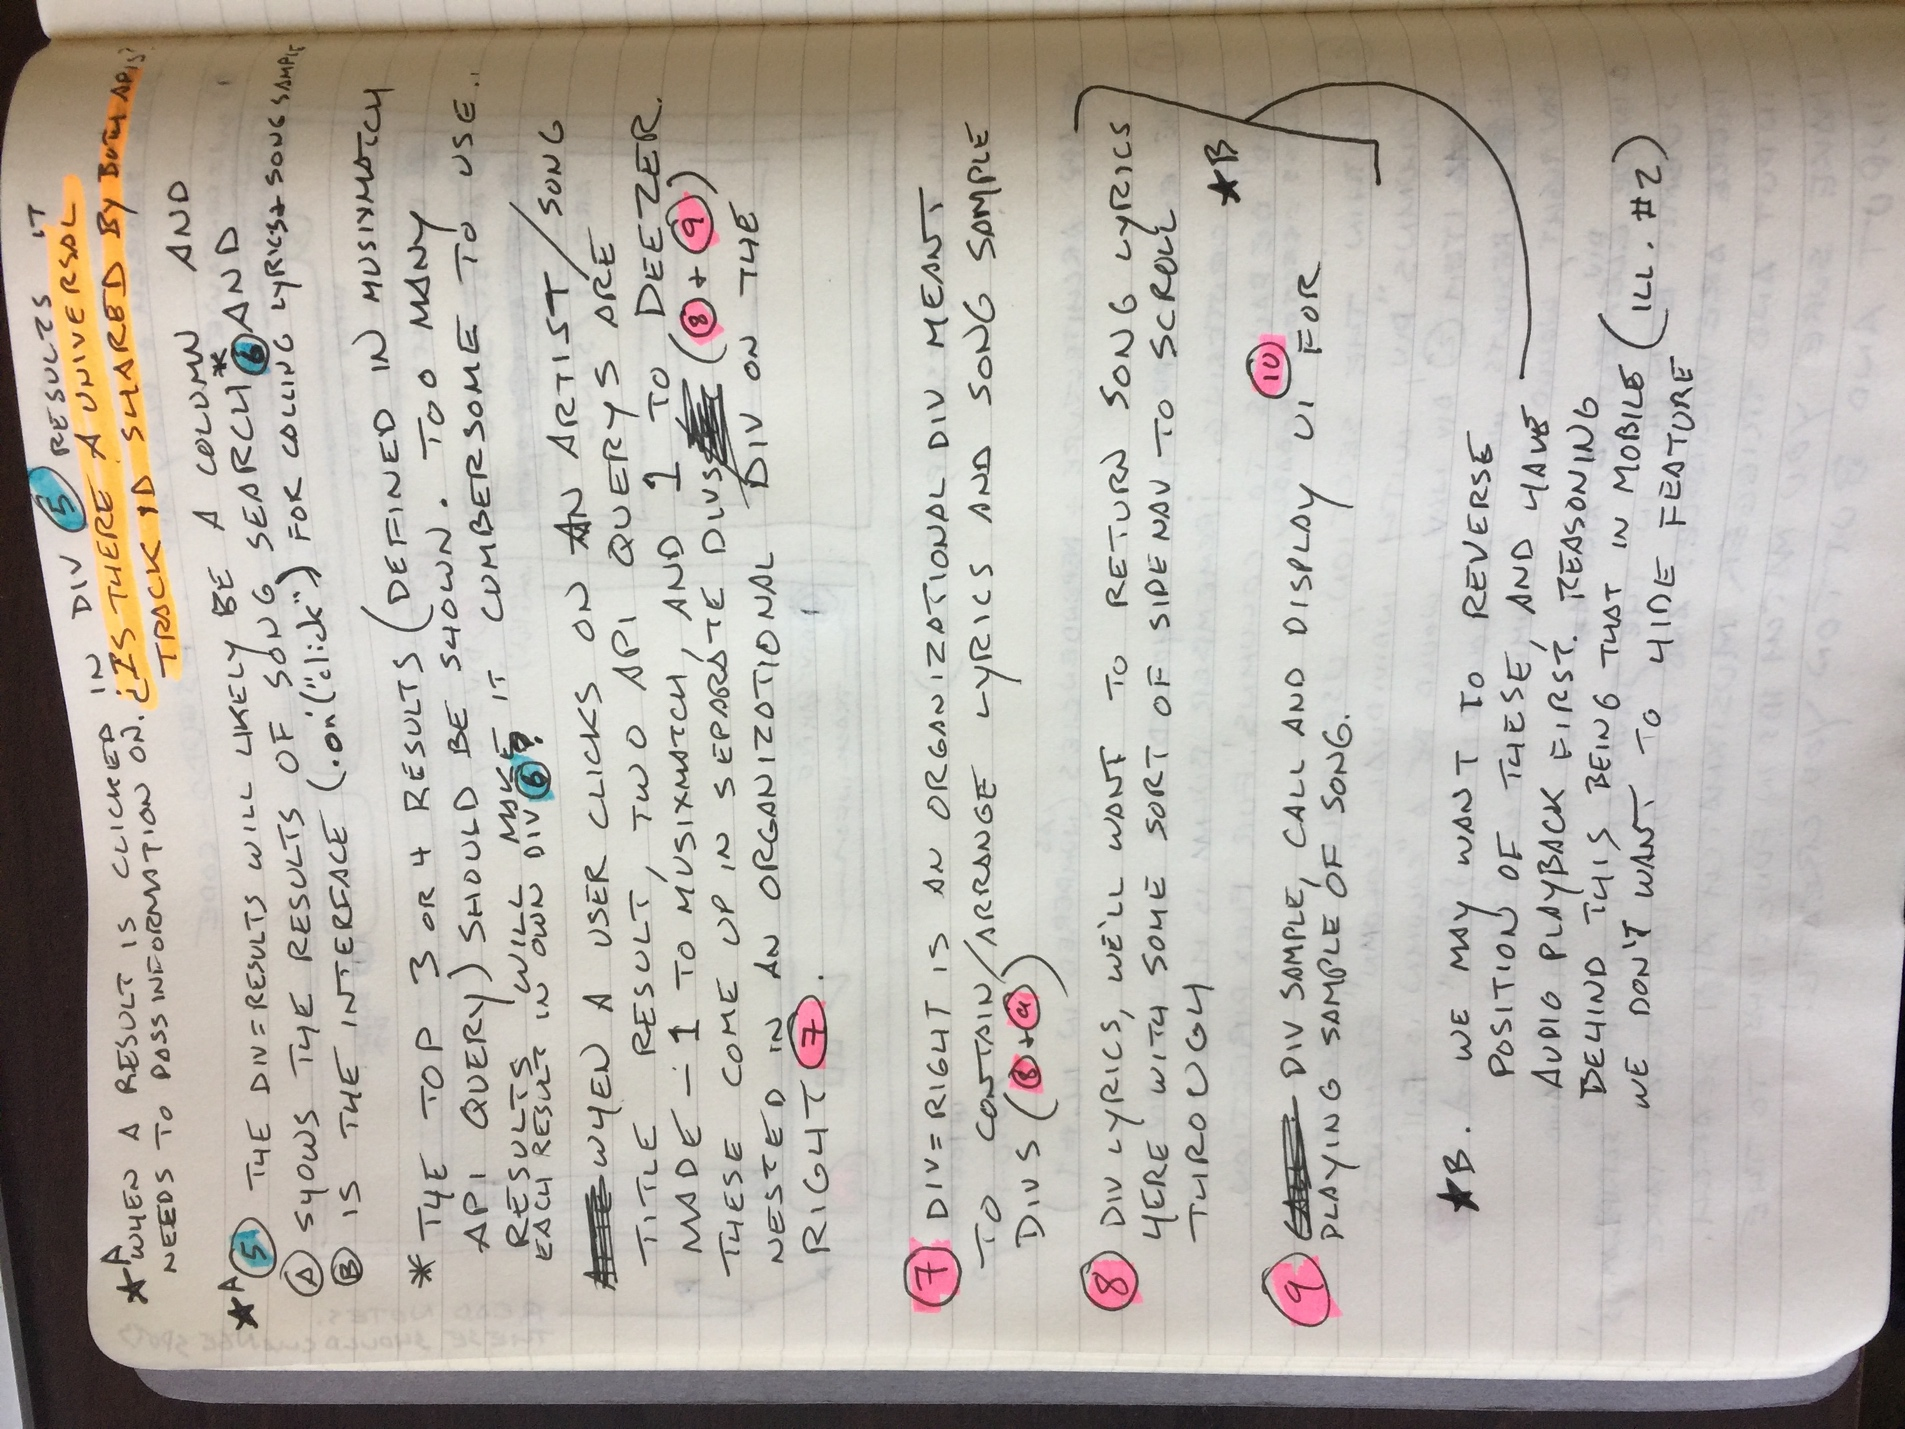 ★A WHEN A RESULT IS CLICKED IN DIV ⑤ RESULTS IT
NEEDS TO PASS INFORMATION ON. ¿IS THERE A UNIVERSAL
TRACK ID SHARED BY BOTH APIS?
★A ⑤ THE DIV=RESULTS WILL LIKELY BE A COLUMN AND
Ⓐ SHOWS THE RESULTS OF SONG SEARCH* ⑥ AND
Ⓑ IS THE INTERFACE (.on("click") FOR CALLING LYRICS + SONG SAMPLE
* THE TOP 3 OR 4 RESULTS (DEFINED IN MUSIXMATCH
API QUERY) SHOULD BE SHOWN. TOO MANY
RESULTS WILL MAKE IT CUMBERSOME TO USE.
EACH RESULT IN OWN DIV ⑥?
WHEN A USER CLICKS ON AN ARTIST/SONG
TITLE RESULT, TWO API QUERYS ARE
MADE – 1 TO MUSIXMATCH, AND 1 TO DEEZER.
THESE COME UP IN SEPARATE DIVS (⑧+⑨)
NESTED IN AN ORGANIZATIONAL DIV ON THE
RIGHT ⑦.
⑦ DIV=RIGHT IS AN ORGANIZATIONAL DIV MEANT
TO CONTAIN/ARRANGE LYRICS AND SONG SAMPLE
DIVS (⑧+⑨)
⑧ DIV LYRICS, WE'LL WANT TO RETURN SONG LYRICS
HERE WITH SOME SORT OF SIDENAV TO SCROLL
THROUGH
★B
⑨ DIV SAMPLE, CALL AND DISPLAY UI ⑩ FOR
PLAYING SAMPLE OF SONG.
★B. WE MAY WANT TO REVERSE
POSITION OF THESE, AND HAVE
AUDIO PLAYBACK FIRST. REASONING
BEHIND THIS BEING THAT IN MOBILE (ILL. #2)
WE DON'T WANT TO HIDE FEATURE